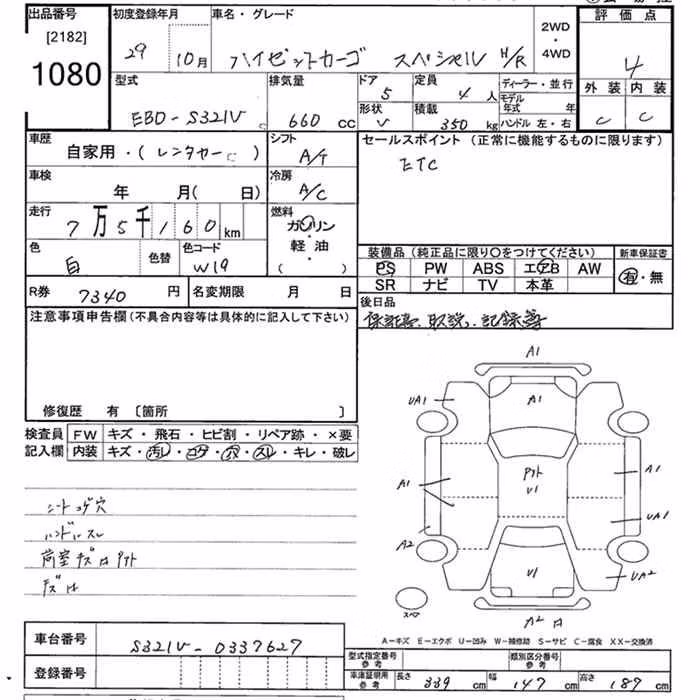 出品番号 初度登録年月 車名・グレード 2WD・4WD 評価点
[2182]
1080 29 10月 ハイゼットカーゴ スペシャル H/R 4
型式 排気量 ドア 定員 ディーラー・並行 外装 内装
EBD-S321V C 660cc 5 4人 モデル年式 年 C C
形状 積載 ハンドル 左・右
V 350kg
車歴 シフト セールスポイント (正常に機能するものに限ります)
自家用・(レンタカー) A/T ETC
車検 冷房
年 月( 日) A/C
走行 燃料
7万5千160km ガソリン・軽油 ( )
色 色替 色コード 装備品 (純正品に限り○をつけてください) 新車保証書
白 W19 PS PW ABS エアB AW 有・無
SR ナビ TV 本革
R券 7340円 名変期限 月 日 後日品
保証書、取説、記録簿
注意事項申告欄 (不具合内容等は具体的に記入して下さい)
修復歴 有 〔箇所 〕
検査員記入欄 FW キズ・飛石・ヒビ割・リペア跡・×要
内装 キズ・汚レ・コゲ・穴・スレ・キレ・破レ
シートコゲ穴
ハンドルスレ
荷室キズ
A1
UA1 A1
A1 U1 A1
UA1
A2
U1 UA2
スペア A2
A−キズ E−エクボ U−凹み W−補修跡 S−サビ C−腐食 XX−交換済
車台番号 S321V-0337627
登録番号
型式指定番号 参考 類別区分番号 参考
車庫証明用 参考 長さ 339 cm 幅 147 cm 高さ 187 cm